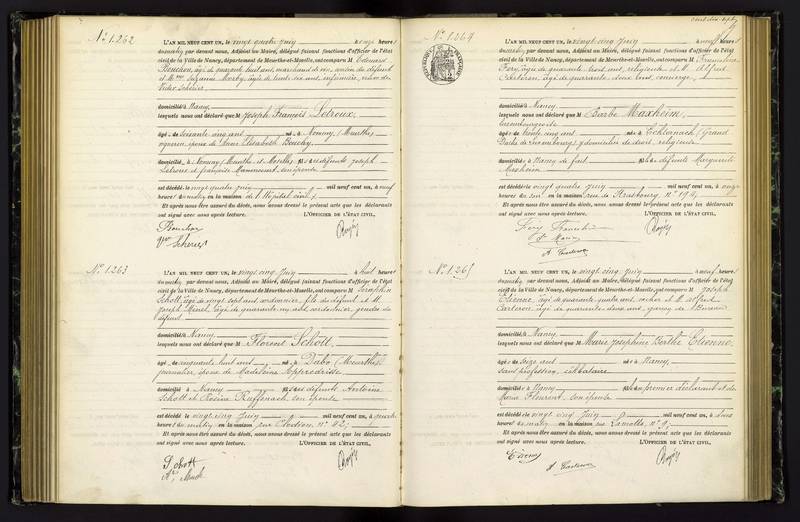 N° 1.262
L'AN MIL NEUF CENT UN, le vingt quatre Juin à onze heures
du matin par devant nous, Adjoint au Maire, délégué faisant fonctions d'officier de l'état
civil de la Ville de Nancy, département de Meurthe-et-Moselle, ont comparu M Edouard
Bouchon, âgé de quarante huit ans, marchand de vin, voisin du défunt
et Mme Suzanne âgée de trente six ans, infirmière, veuve de
Victor Scherer,
domiciliés à Nancy
lesquels nous ont déclaré que M Joseph François Letroux,
âgé de soixante cinq ans né à Nomeny (Meurthe)
époux de Anne Elisabeth Bouchy
domicilié à Nomeny (Meurthe et Moselle) fils des défunts Joseph
Letroux et Françoise son épouse
est décédé le vingt quatre Juin mil neuf cent un, à neuf
heures du matin en la maison de l'Hôpital civil,
Et après nous être assuré du décès, nous avons dressé le présent acte que les déclarants
ont signé avec nous après lecture. L'OFFICIER DE L'ÉTAT CIVIL,
Bouchon
Vve Scherer
N° 1.263
L'AN MIL NEUF CENT UN, le vingt cinq Juin à huit heures
du matin par devant nous, Adjoint au Maire, délégué faisant fonctions d'officier de l'état
civil de la Ville de Nancy, département de Meurthe-et-Moselle, ont comparu M Séraphin
Schott, âgé de vingt sept ans cordonnier, fils du défunt et M.
Joseph âgé de quarante ans, cordonnier, gendre du
défunt
domiciliés à Nancy
lesquels nous ont déclaré que M Florent Schott,
âgé de cinquante huit ans né à Dabo (Meurthe)
journalier, époux de Madeleine
domicilié à Nancy fils des défunts Antoine
Schott et Rosine Ruffenach son épouse
est décédé le vingt cinq Juin mil neuf cent un, à quatre
heures du matin en la maison rue Clodion, n° 42,
Et après nous être assuré du décès, nous avons dressé le présent acte que les déclarants
ont signé avec nous après lecture. L'OFFICIER DE L'ÉTAT CIVIL,
Schott
N° 1.264
L'AN MIL NEUF CENT UN, le vingt cinq Juin à neuf heures
du matin par devant nous, Adjoint au Maire, délégué faisant fonctions d'officier de l'état
civil de la Ville de Nancy, département de Meurthe-et-Moselle, ont comparu M Françoise
Fery, âgée de quarante trois ans, religieuse et M. Alfred
Carteron, âgé de quarante deux ans, concierge,
domiciliés à Nancy
lesquels nous ont déclaré que M Barbe Maxheim,
luxembourgeoise
âgée de trente cinq ans née à Echternach (Grand
Duché de Luxembourg) y domiciliée de droit, religieuse
domiciliée à Nancy de fait fille de défunte Marguerite
Maxheim
est décédée le vingt quatre Juin mil neuf cent un, à onze
heures du soir en la maison rue de Strasbourg, n° 194,
Et après nous être assuré du décès, nous avons dressé le présent acte que les déclarants
ont signé avec nous après lecture. L'OFFICIER DE L'ÉTAT CIVIL,
Fery
A Carteron
N° 1.265
L'AN MIL NEUF CENT UN, le vingt cinq Juin à neuf heures
du matin par devant nous, Adjoint au Maire, délégué faisant fonctions d'officier de l'état
civil de la Ville de Nancy, département de Meurthe-et-Moselle, ont comparu M Joseph
Etienne, âgé de quarante quatre ans, cocher et M. Alfred
Carteron, âgé de quarante deux ans, garçon de Bureau
domiciliés à Nancy
lesquels nous ont déclaré que M Marie Joséphine Berthe Etienne,
âgée de seize ans née à Nancy,
sans profession, célibataire
domiciliée à Nancy fille du premier déclarant et de
Marie Florent, son épouse
est décédée le vingt cinq Juin mil neuf cent un, à deux
heures du matin en la maison rue n° 9,
Et après nous être assuré du décès, nous avons dressé le présent acte que les déclarants
ont signé avec nous après lecture. L'OFFICIER DE L'ÉTAT CIVIL,
Etienne
A Carteron